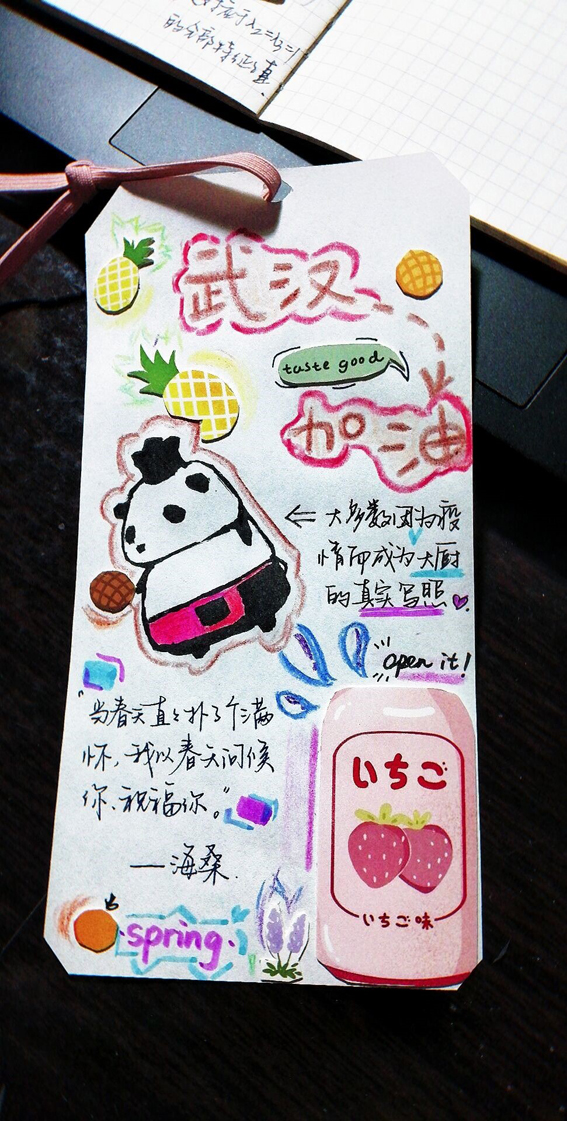 的全部特征值真
武汉
taste good
加油
⇐ 大多数因为疫
情而成为大厨
的真实写照
open it!
"当春天直直扑了个满
怀,我以春天问候
你、祝福你。"
—海桑.
いちご
いちご味
·spring·